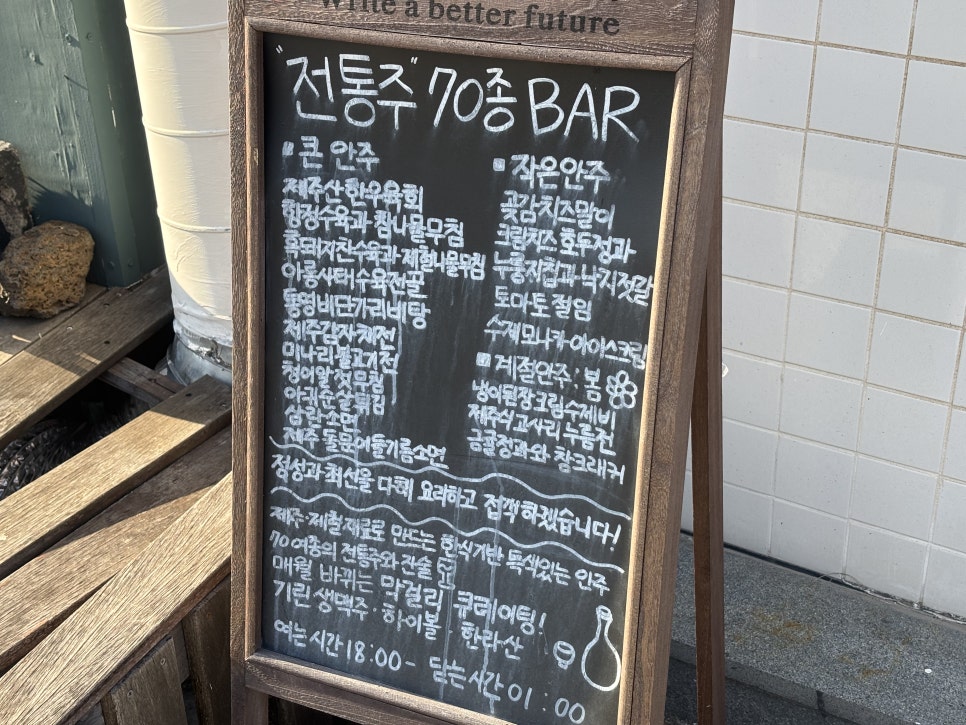 Write a better future
"전통주" 70종 BAR
큰 안주
제주산 한우육회
항정수육과 참나물무침
흑돼지찬수육과 제철나물무침
아롱사태수육전골
통영비단가리비탕
제주감자채전
미나리불고기전
청어알젓무침
아귀순살튀김
삼란소면
제주 돌문어들기름소면
작은안주
곶감치즈말이
크림치즈 호두정과
누룽지칩과 낙지젓갈
토마토절임
수제모나카 아이스크림
계절안주: 봄
냉이된장크림수제비
제주식고사리 누름전
금귤정과와 참크래커
정성과 최선을 다해 요리하고 접객하겠습니다!
제주·제철 재료로 만드는 한식기반 특색있는 안주
70여종의 전통주와 잔술
매월 바뀌는 막걸리 큐레이팅!
기린 생맥주·하이볼·한라산
여는시간 18:00 - 닫는시간 01:00